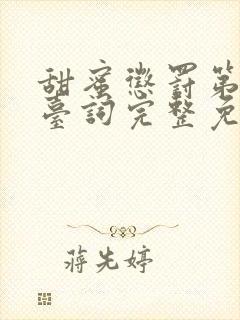 甜蜜懲罰第
臺詞完整免
蔣先婷